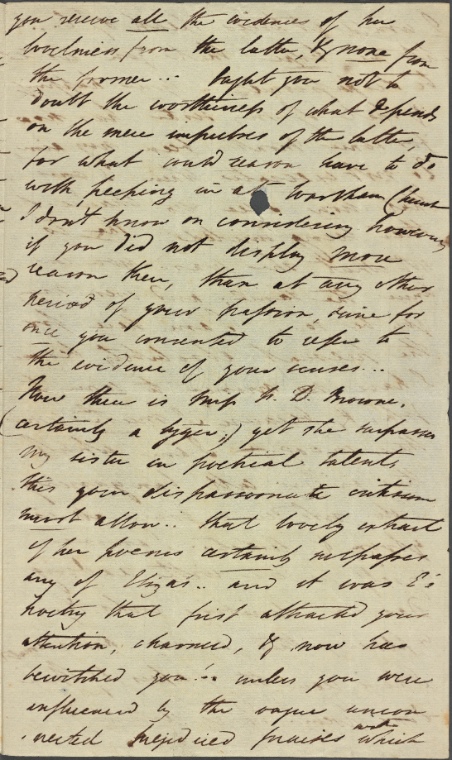 you receive all the evidences of her
loveliness from the latter, & none from
the former... Ought you not to
doubt the worthiness of what depends
on the mere impulses of the latter,
for what could reason have to do
with peeping in at Warnham Church
I don't know on considering however
if you did not display more
reason then, than at any other
period of your passion, since for
once you consented to refer to
the evidence of your senses...
Now there is Miss F. D. Browne.
(certainly a tyger,) yet she surpasses
my sister in poetical talents
this your dispassionate criticism
must allow.. that lovely extract
of her poems certainly surpasses
any of Eliza's.. and it was E's
poetry that first attracted your
attention, charmed, & now has
bewitched you!.. unless you were
influenced by the vague uncon
nected prejudiced praises with which